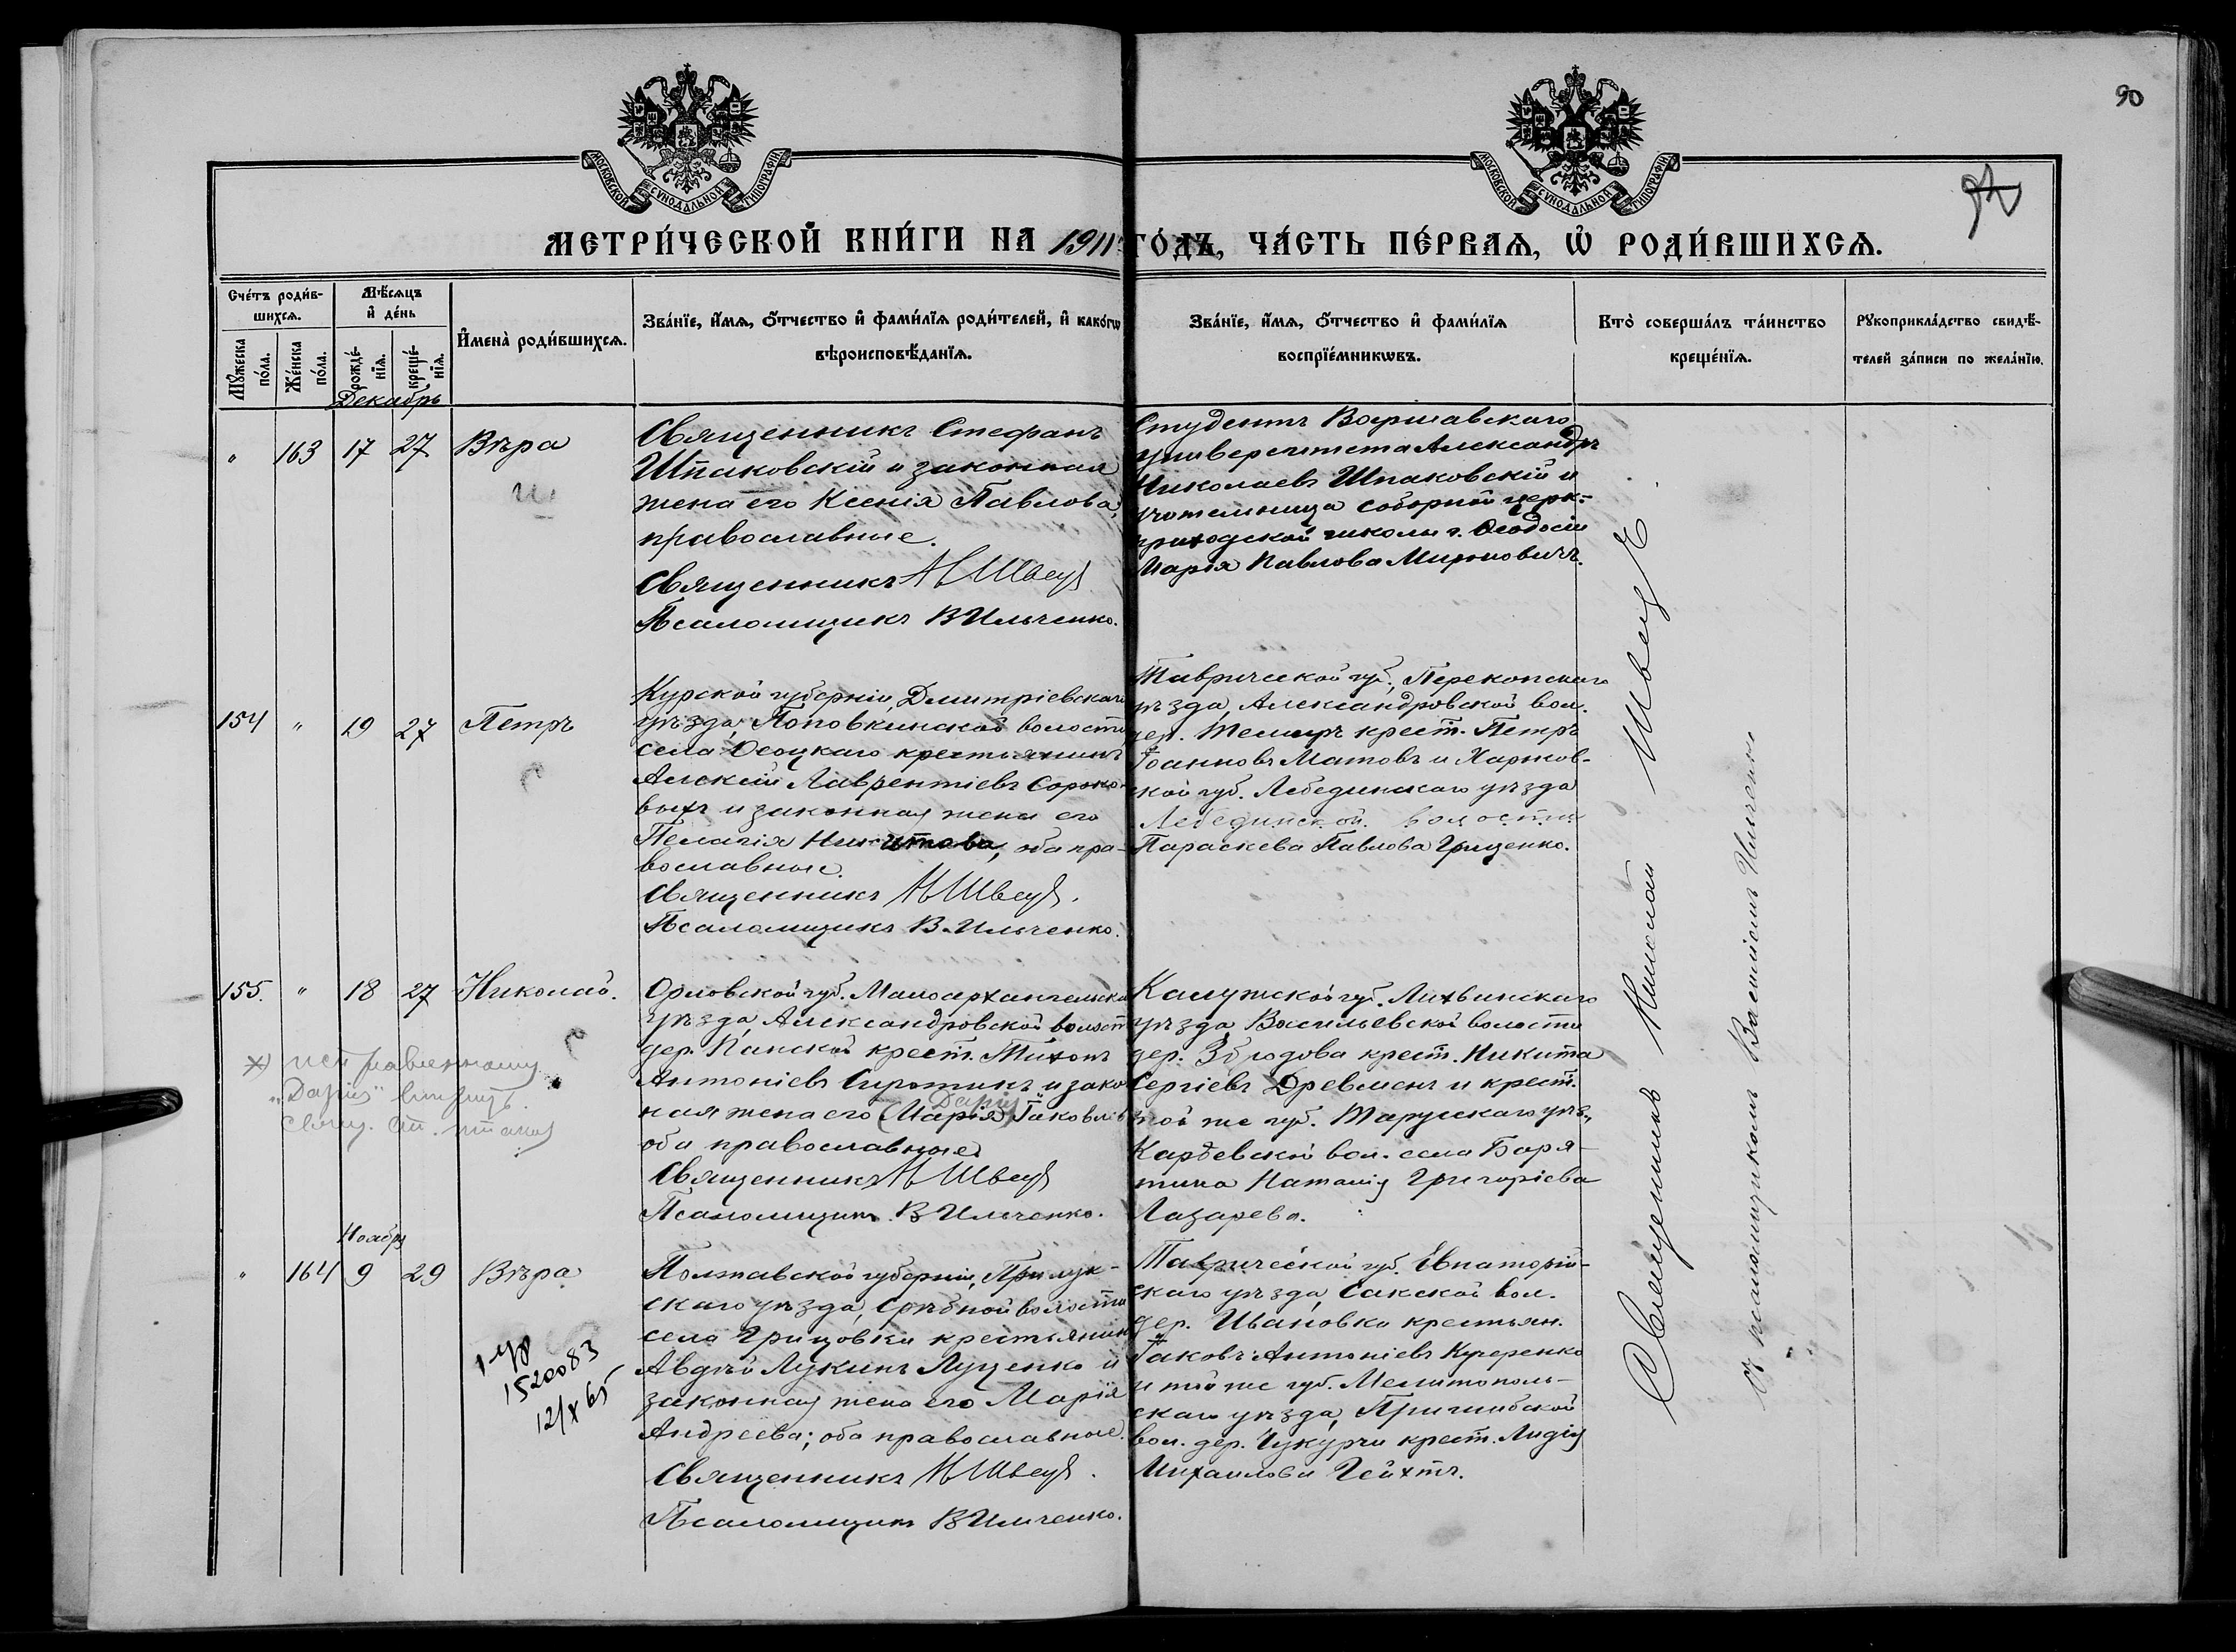 90
МОСКОВСКОЙ СѴНОДАЛЬНОЙ ТИПОГРАФІИ
МОСКОВСКОЙ СѴНОДАЛЬНОЙ ТИПОГРАФІИ
МЕТРИ́ЧЕСКОЙ КНИ́ГИ НА 1911 ГО́ДЪ, ЧА́СТЬ ПЕ́РВАѦ, Ѽ РОДИ́ВШИХСѦ.
Сче́тъ роди́в-
шихсѧ.
Мꙋ́жеска по́ла.
Же́нска по́ла.
Мѣ́сѧцъ
и҆ де́нь
рожде́-
нїѧ.
креще́-
нїѧ.
И҆мена̀ роди́вшихсѧ.
Зва́нїе, и҆́мѧ, ѻ҆́тчество и҆ фами́лїѧ роди́телей, и҆ како́гѡ
вѣроисповѣ́данїѧ.
Зва́нїе, и҆́мѧ, ѻ҆́тчество и҆ фами́лїѧ
воспрїе́мникѡвъ.
Кто̀ соверша́лъ та́инство
креще́нїѧ.
Рꙋкоприкла́дство свидѣ́-
телей за́писи по жела́нїю.
Декабрь
" 163 17 27 Вѣра
Священникъ Стефанъ
Шпаковскій и законная
жена его Ксенія Павлова,
православные.
Священникъ Н Швецъ
Псаломщикъ В Ильченко.
Студентъ Варшавскаго
университета Александръ
Николаевъ Шпаковскій и
учительница соборной церк.-
приходской школы г. Ѳеодосіи
Марія Павлова Мирковичъ.
154 " 19 27 Петръ
Курской губерніи, Дмитріевскаго
уѣзда, Поповкинской волости
села Осоцкаго крестьянинъ
Алексій Лаврентіевъ Сороко-
выхъ и законная жена его
Пелагія Никитова, оба пра-
вославные.
Священникъ Н Швецъ.
Псаломщикъ В. Ильченко.
Таврической губ., Перекопскаго
уѣзда, Александровской вол.
дер. крест. Петръ
Іоанновъ Матовъ и Харьков-
кой губ. Лебединскаго уѣзда
Лебединской волости
Параскева Павлова Гриценко.
155. " 18 27 Николай.
Орловской губ. Малоархангельска
уѣзда, Александровской волост
дер. Панской крест. Тихонъ
Антоніевъ Сиротинъ и зако
ная жена его (Марія) Іаковлев
Дарія
оба православные
Священникъ Н Швецъ
Псаломщикъ В Ильченко.
Калужской губ. Лихвинскаго
уѣзда, Васильевской волости
дер. Збродова крест. Никита
Сергіевъ и крест.
той же губ. Тарусскаго уѣз.
Карѣевской вол. села Баря-
тина Наталія Григоріева
Лазарева.
х) исправленному
"Дарія" вѣрить.
Ноября
" 164 9 29 Вѣра
Полтавской губерніи, Прилук-
скаго уѣзда, Срѣбной волости
села Грицовки крестьянин
Авдѣй Лукинъ Луценко и
законная жена его Марія
Андреева; оба православные.
Священникъ Н Швецъ.
Псаломщикъ В Ильченко.
Таврической губ. Евпаторій-
скаго уѣзда, Сакской вол.
дер. Ивановки крестьян.
Іаковъ Антоніевъ Кучеренко
и той же губ. Мелитополь-
скаго уѣзда, Пришибской
вол. дер. Чукурчи крест. Лидія
Михаилова Гейхтъ.
1520083
12/X 65
Священникъ Николай Швецъ
Съ псаломщикомъ Василіемъ Ильченко